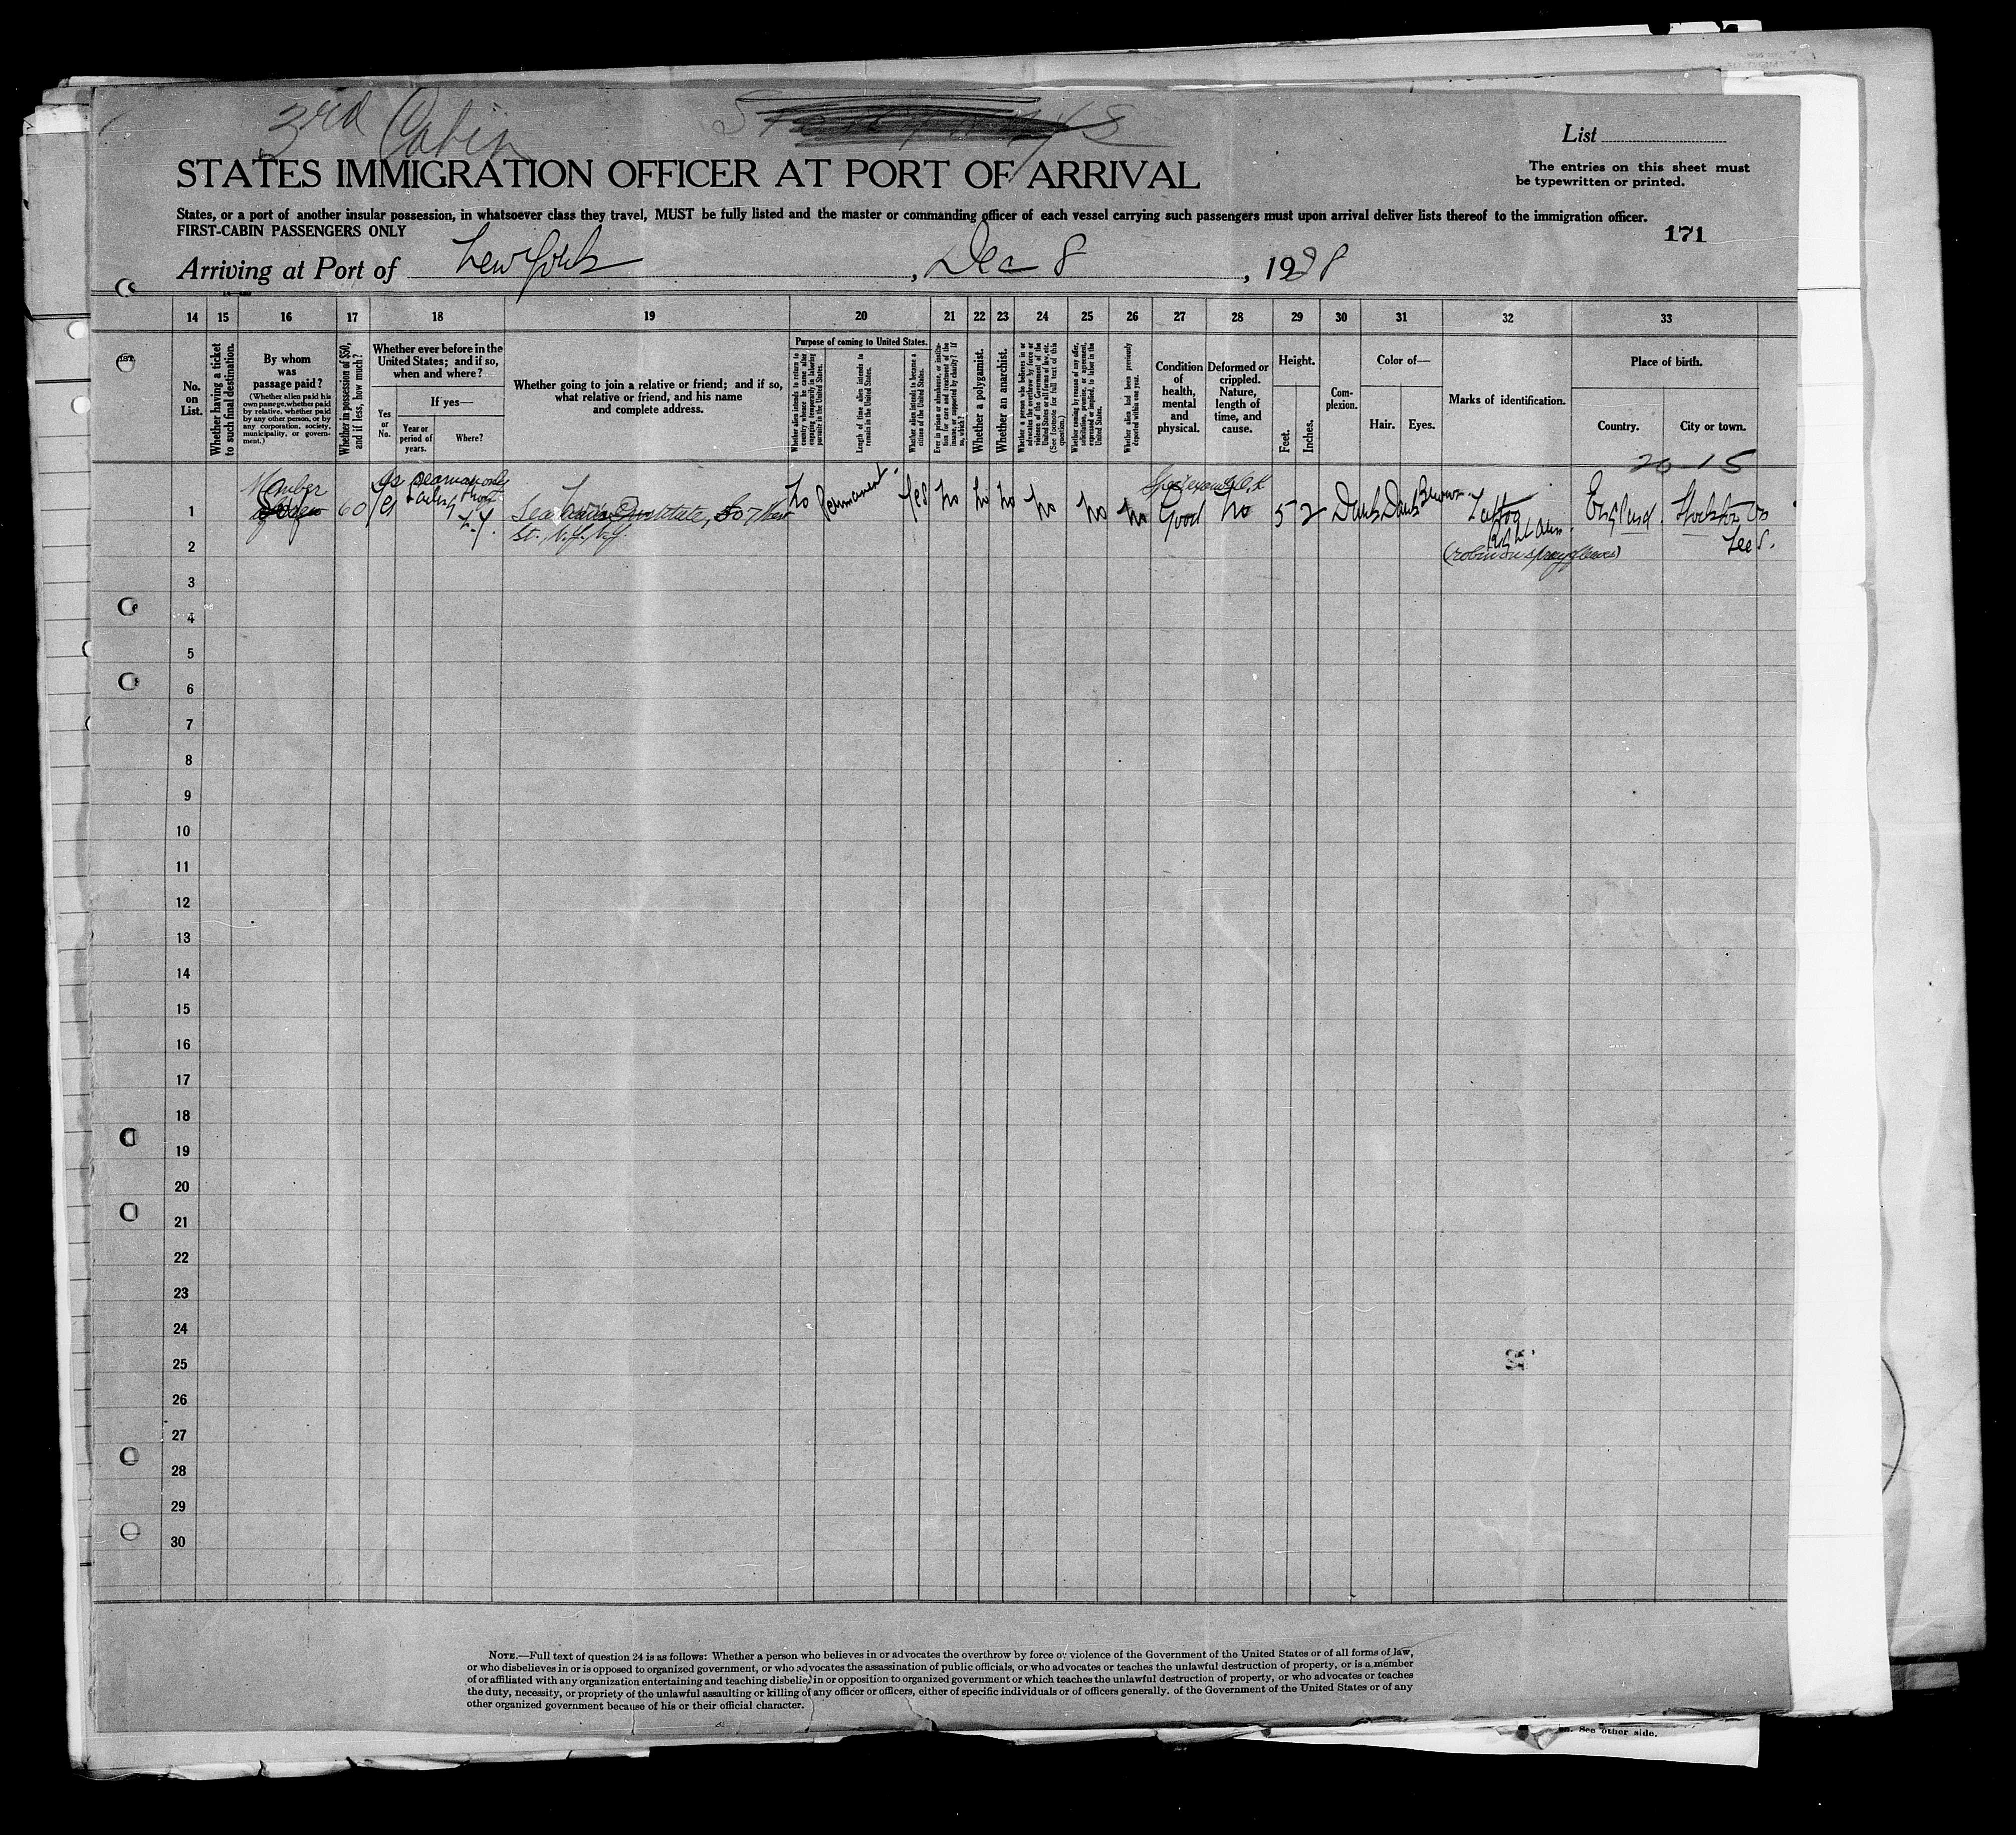 3rd Cabin
List
STATES IMMIGRATION OFFICER AT PORT OF ARRIVAL
The entries on this sheet must
be typewritten or printed.
States, or a port of another insular possession, in whatsoever class they travel, MUST be fully listed and the master or commanding officer of each vessel carrying such passengers must upon arrival deliver lists thereof to the immigration officer.
FIRST-CABIN PASSENGERS ONLY
171
Arriving at Port of New York, Dec 8, 1928
14 15 16 17 18 19 20 21 22 23 24 25 26 27 28 29 30 31 32 33
No. on List.
Whether having a ticket to such final destination.
By whom was passage paid?
(Whether alien paid his own passage, whether paid by relative, whether paid by any other person, or by any corporation, society, municipality, or government.)
Whether in possession of $50, and if less, how much?
Whether ever before in the United States; and if so, when and where?
Yes or No.
If yes—
Year or period of years.
Where?
Whether going to join a relative or friend; and if so, what relative or friend, and his name and complete address.
Purpose of coming to United States.
Whether alien intends to return to country whence he came after engaging temporarily in laboring pursuits in the United States.
Length of time alien intends to remain in the United States.
Whether alien intends to become a citizen of the United States.
Ever in prison or almshouse, or institution for care and treatment of the insane, or supported by charity? If so, which?
Whether a polygamist.
Whether an anarchist.
Whether a person who believes in or advocates the overthrow by force or violence of the Government of the United States or all forms of law, etc. (See footnote for full text of this question.)
Whether coming by reason of any offer, solicitation, promise, or agreement, expressed or implied, to labor in the United States.
Whether alien had been previously deported within one year.
Condition of health, mental and physical.
Deformed or crippled. Nature, length of time, and cause.
Height.
Feet.
Inches.
Complexion.
Color of—
Hair.
Eyes.
Marks of identification.
Place of birth.
Country.
City or town.
20-15
1 Member 60 Yes Seaman only N.Y. Institute, 507 West St., N.Y., N.Y. No Permanent Yes No No No No No No Good No 5 2 Dark Dark Brown Tattoo Right Arm England Stockton on Tees.
2
3
4
5
6
7
8
9
10
11
12
13
14
15
16
17
18
19
20
21
22
23
24
25
26
27
28
29
30
NOTE.—Full text of question 24 is as follows: Whether a person who believes in or advocates the overthrow by force or violence of the Government of the United States or of all forms of law,
or who disbelieves in or is opposed to organized government, or who advocates the assassination of public officials, or who advocates or teaches the unlawful destruction of property, or is a member
of or affiliated with any organization entertaining and teaching disbelief in or opposition to organized government or which teaches the unlawful destruction of property, or who advocates or teaches
the duty, necessity, or propriety of the unlawful assaulting or killing of any officer or officers, either of specific individuals or of officers generally. of the Government of the United States or of any
other organized government because of his or their official character.
See other side.